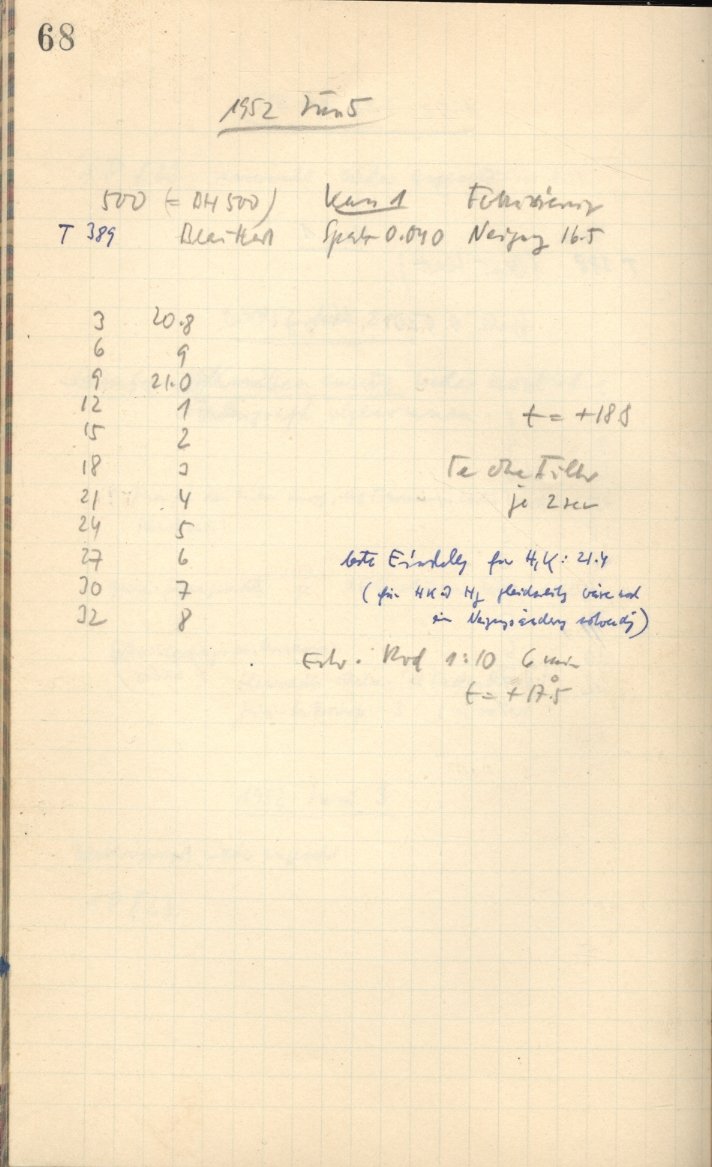 68
1952 Juni 5
500 (= DH 500) Kam 1 Fokussierung
T 389 Blau Hart Spalt 0.040 Neigung 16.5
3 20.8
6 9
9 21.0
12 1
15 2
18 3
21 4
24 5
27 6
30 7
32 8
t = +18.8
Fe ohne Filter
je 2 sec
beste Einstellg für H,K: 21.4
(für HK + Hγ gleichzeitig wäre noch
ein Neigungsänderg notwendig)
Entw. Rod 1:10 6 min
t = +17.5°